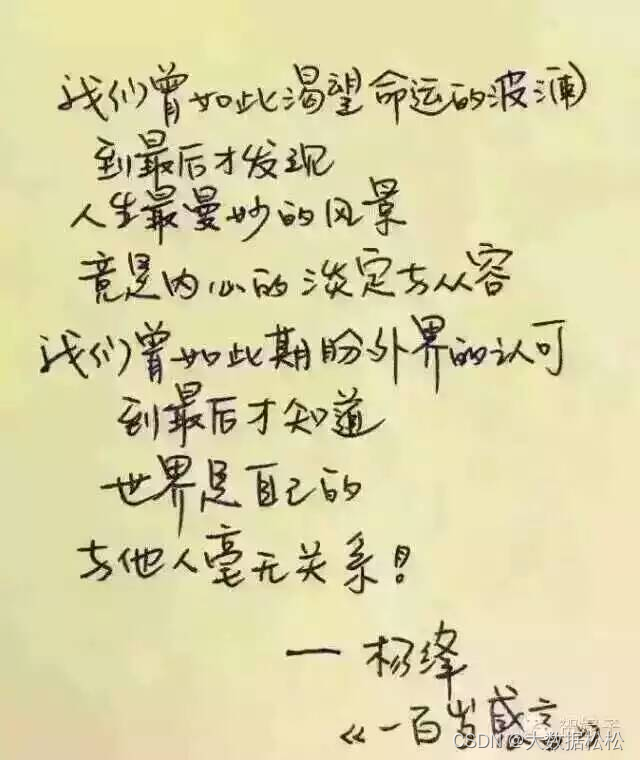 我们曾如此渴望命运的波澜
到最后才发现
人生最曼妙的风景
竟是内心的淡定与从容
我们曾如此期盼外界的认可
到最后才知道
世界是自己的
与他人毫无关系！
— 杨绛
《一百岁感言》
CSDN @大数据松松